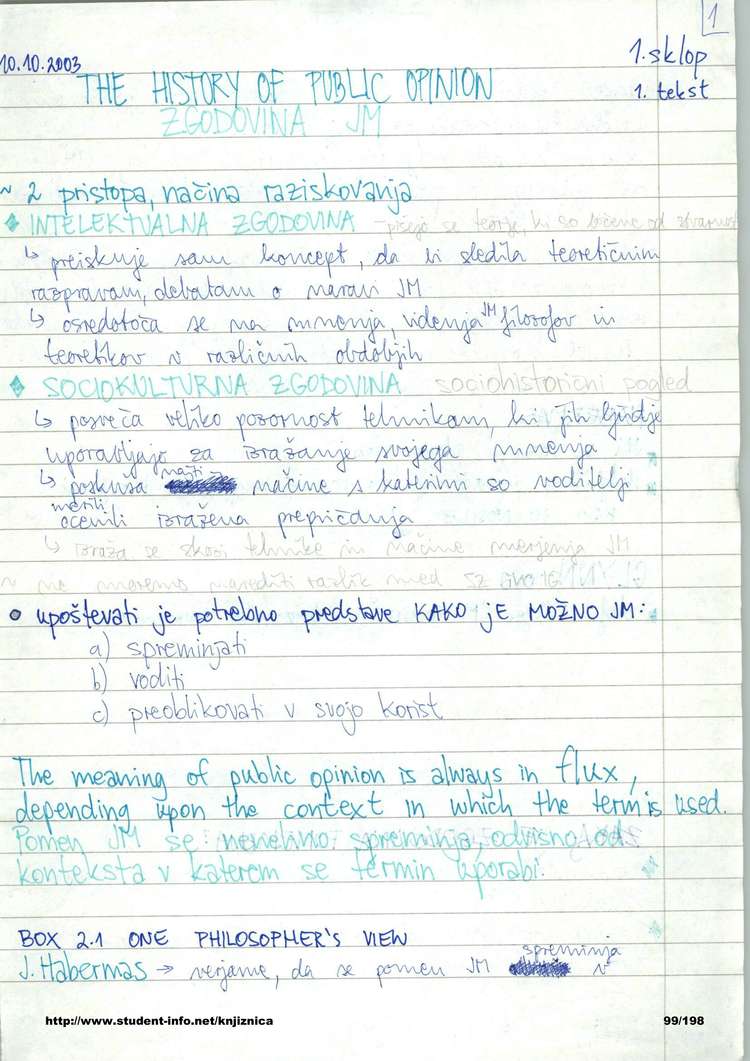 1
10.10.2003
1. sklop
THE HISTORY OF PUBLIC OPINION
1. tekst
ZGODOVINA JM
~ 2 pristopa, načina raziskovanja
INTELEKTUALNA ZGODOVINA - pišejo se teorije, ki so ločene od stvarnosti
↳ preiskuje sam koncept, da bi sledila teoretičnim
razpravam, debatam o naravi JM
↳ osredotoča se na mnenja, videnja JM filozofov in
teoretikov v različnih obdobjih
SOCIOKULTURNA ZGODOVINA sociohistorični pogled
↳ posveča veliko pozornost tehnikam, ki jih ljudje
uporabljajo za izražanje svojega mnenja
↳ poskuša najti načine s katerimi so voditelji
merili
ocenili izražena prepričanja
↳ izraža se skozi tehnike in načine merjenja JM
~ ne moremo narediti razlik med SZ in IG
• upoštevati je potrebno predstave KAKO JE MOŽNO JM:
a) spreminjati
b) voditi
c) preoblikovati v svojo korist
The meaning of public opinion is always in flux,
depending upon the context in which the term is used.
Pomen JM se nenehno spreminja, odvisno od
konteksta v katerem se termin uporabi.
BOX 2.1 ONE PHILOSOPHER'S VIEW
J. Habermas → verjame, da se pomen JM spreminja v
http://www.student-info.net/knjiznica
99/198